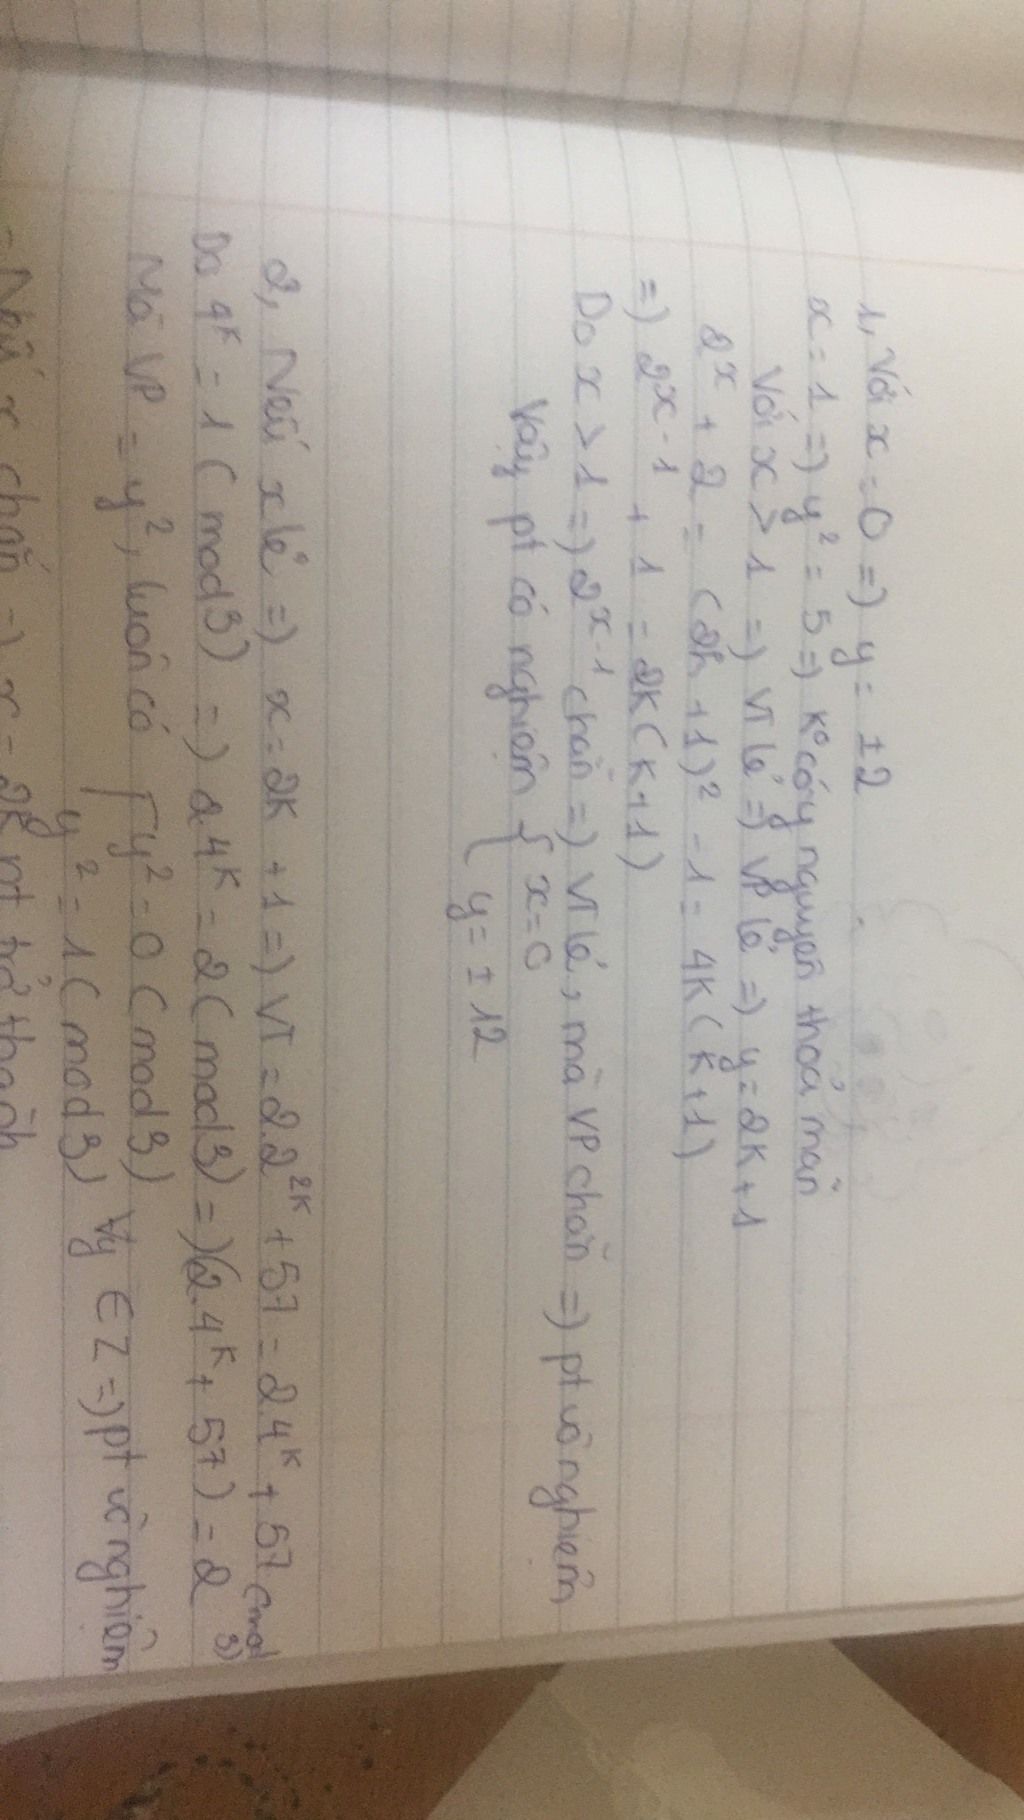 1, Với x = 0 => y = ±2
x = 1 => y² = 5 => k° có y nguyên thoả mãn
Với x > 1 => VT lẻ => VP lẻ => y = 2k+1
2ˣ + 2 = (2k+1)² - 1 = 4k(k+1)
=) 2ˣ⁻¹ + 1 = 2k(k+1)
Do x > 1 => 2ˣ⁻¹ chẵn => VT lẻ, mà VP chẵn => pt vô nghiệm
Vậy pt có nghiệm { x = 0
y = ±12
2, Nếu x lẻ => x = 2k + 1 => VT = 2.2²ᴷ + 57 = 2.4ᴷ + 57
Do 4ᴷ = 1 (mod 3) => 2.4ᴷ = 2 (mod 3) => (2.4ᴷ + 57) = 2 (mod 3)
Mà VP = y², luôn có [ y² = 0 (mod 3)
y² = 1 (mod 3) ∀y ∈ Z => pt vô nghiệm
- Nếu x chẵn => x = 2k pt trở thành